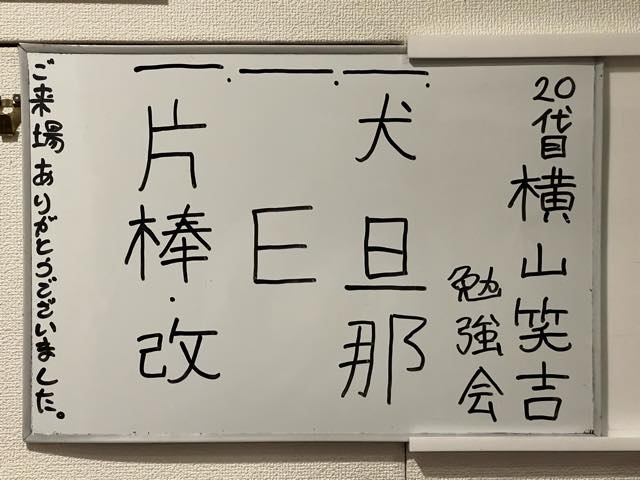 20代目横山笑吉
勉強会
一、犬旦那
一、E
一、片棒・改
ご来場ありがとうございました。